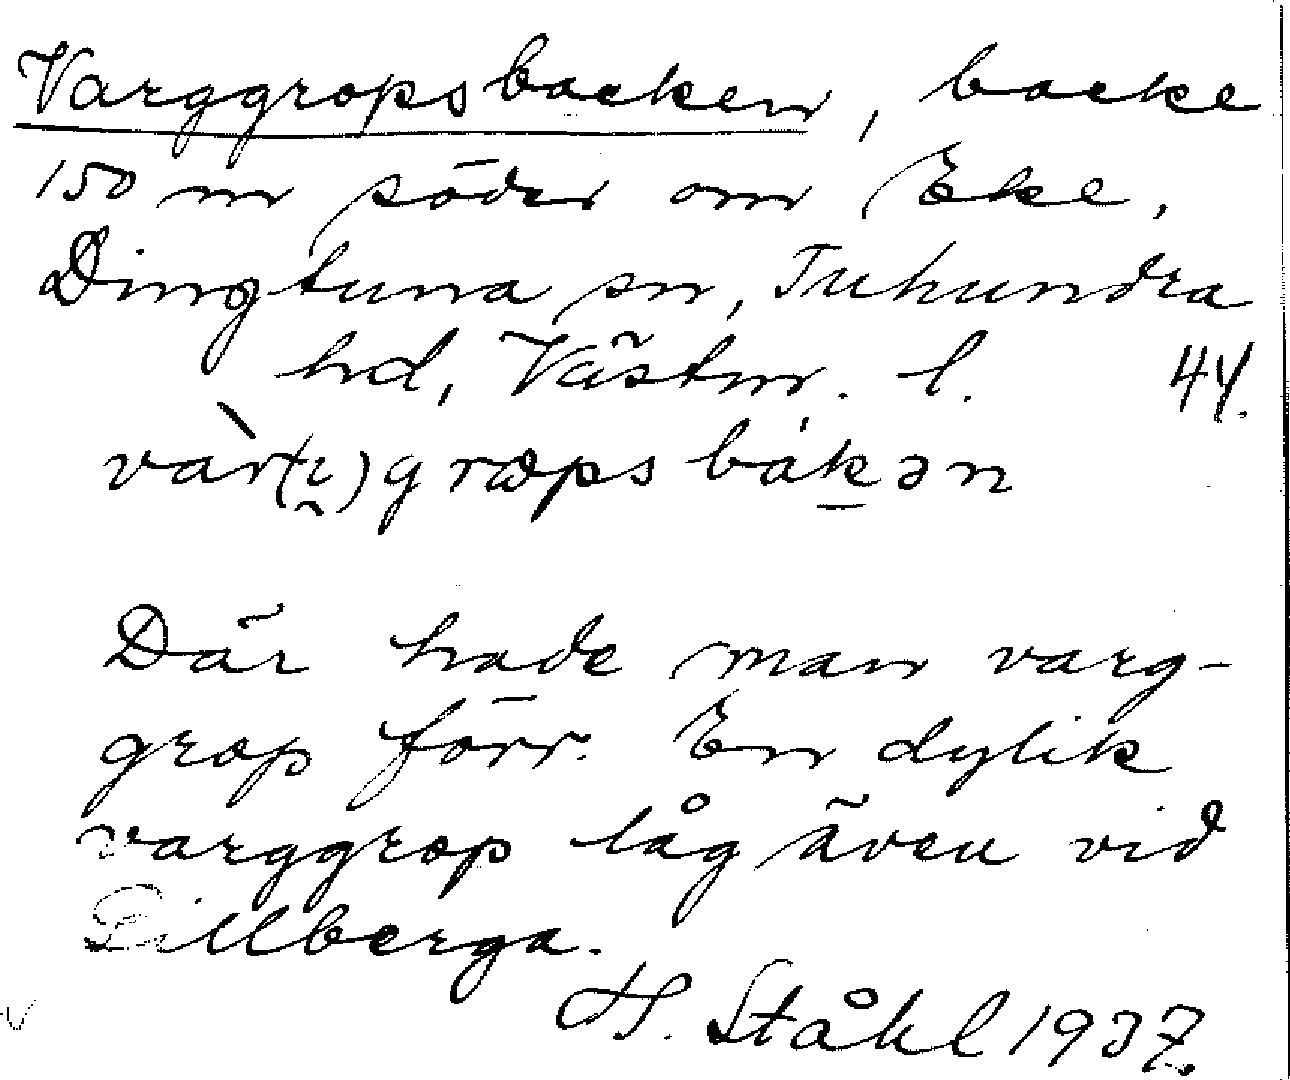 Varggropsbacken, backe
150 m söder om Eke,
Dingtuna sn, Tuhundra
hd, Västm. l. 44.
vàr(ı̰)græpsbákən
Där hade man varg-
grop förr. En dylik
varggrop låg även vid
Lillberga.
H. Ståhl 1937.